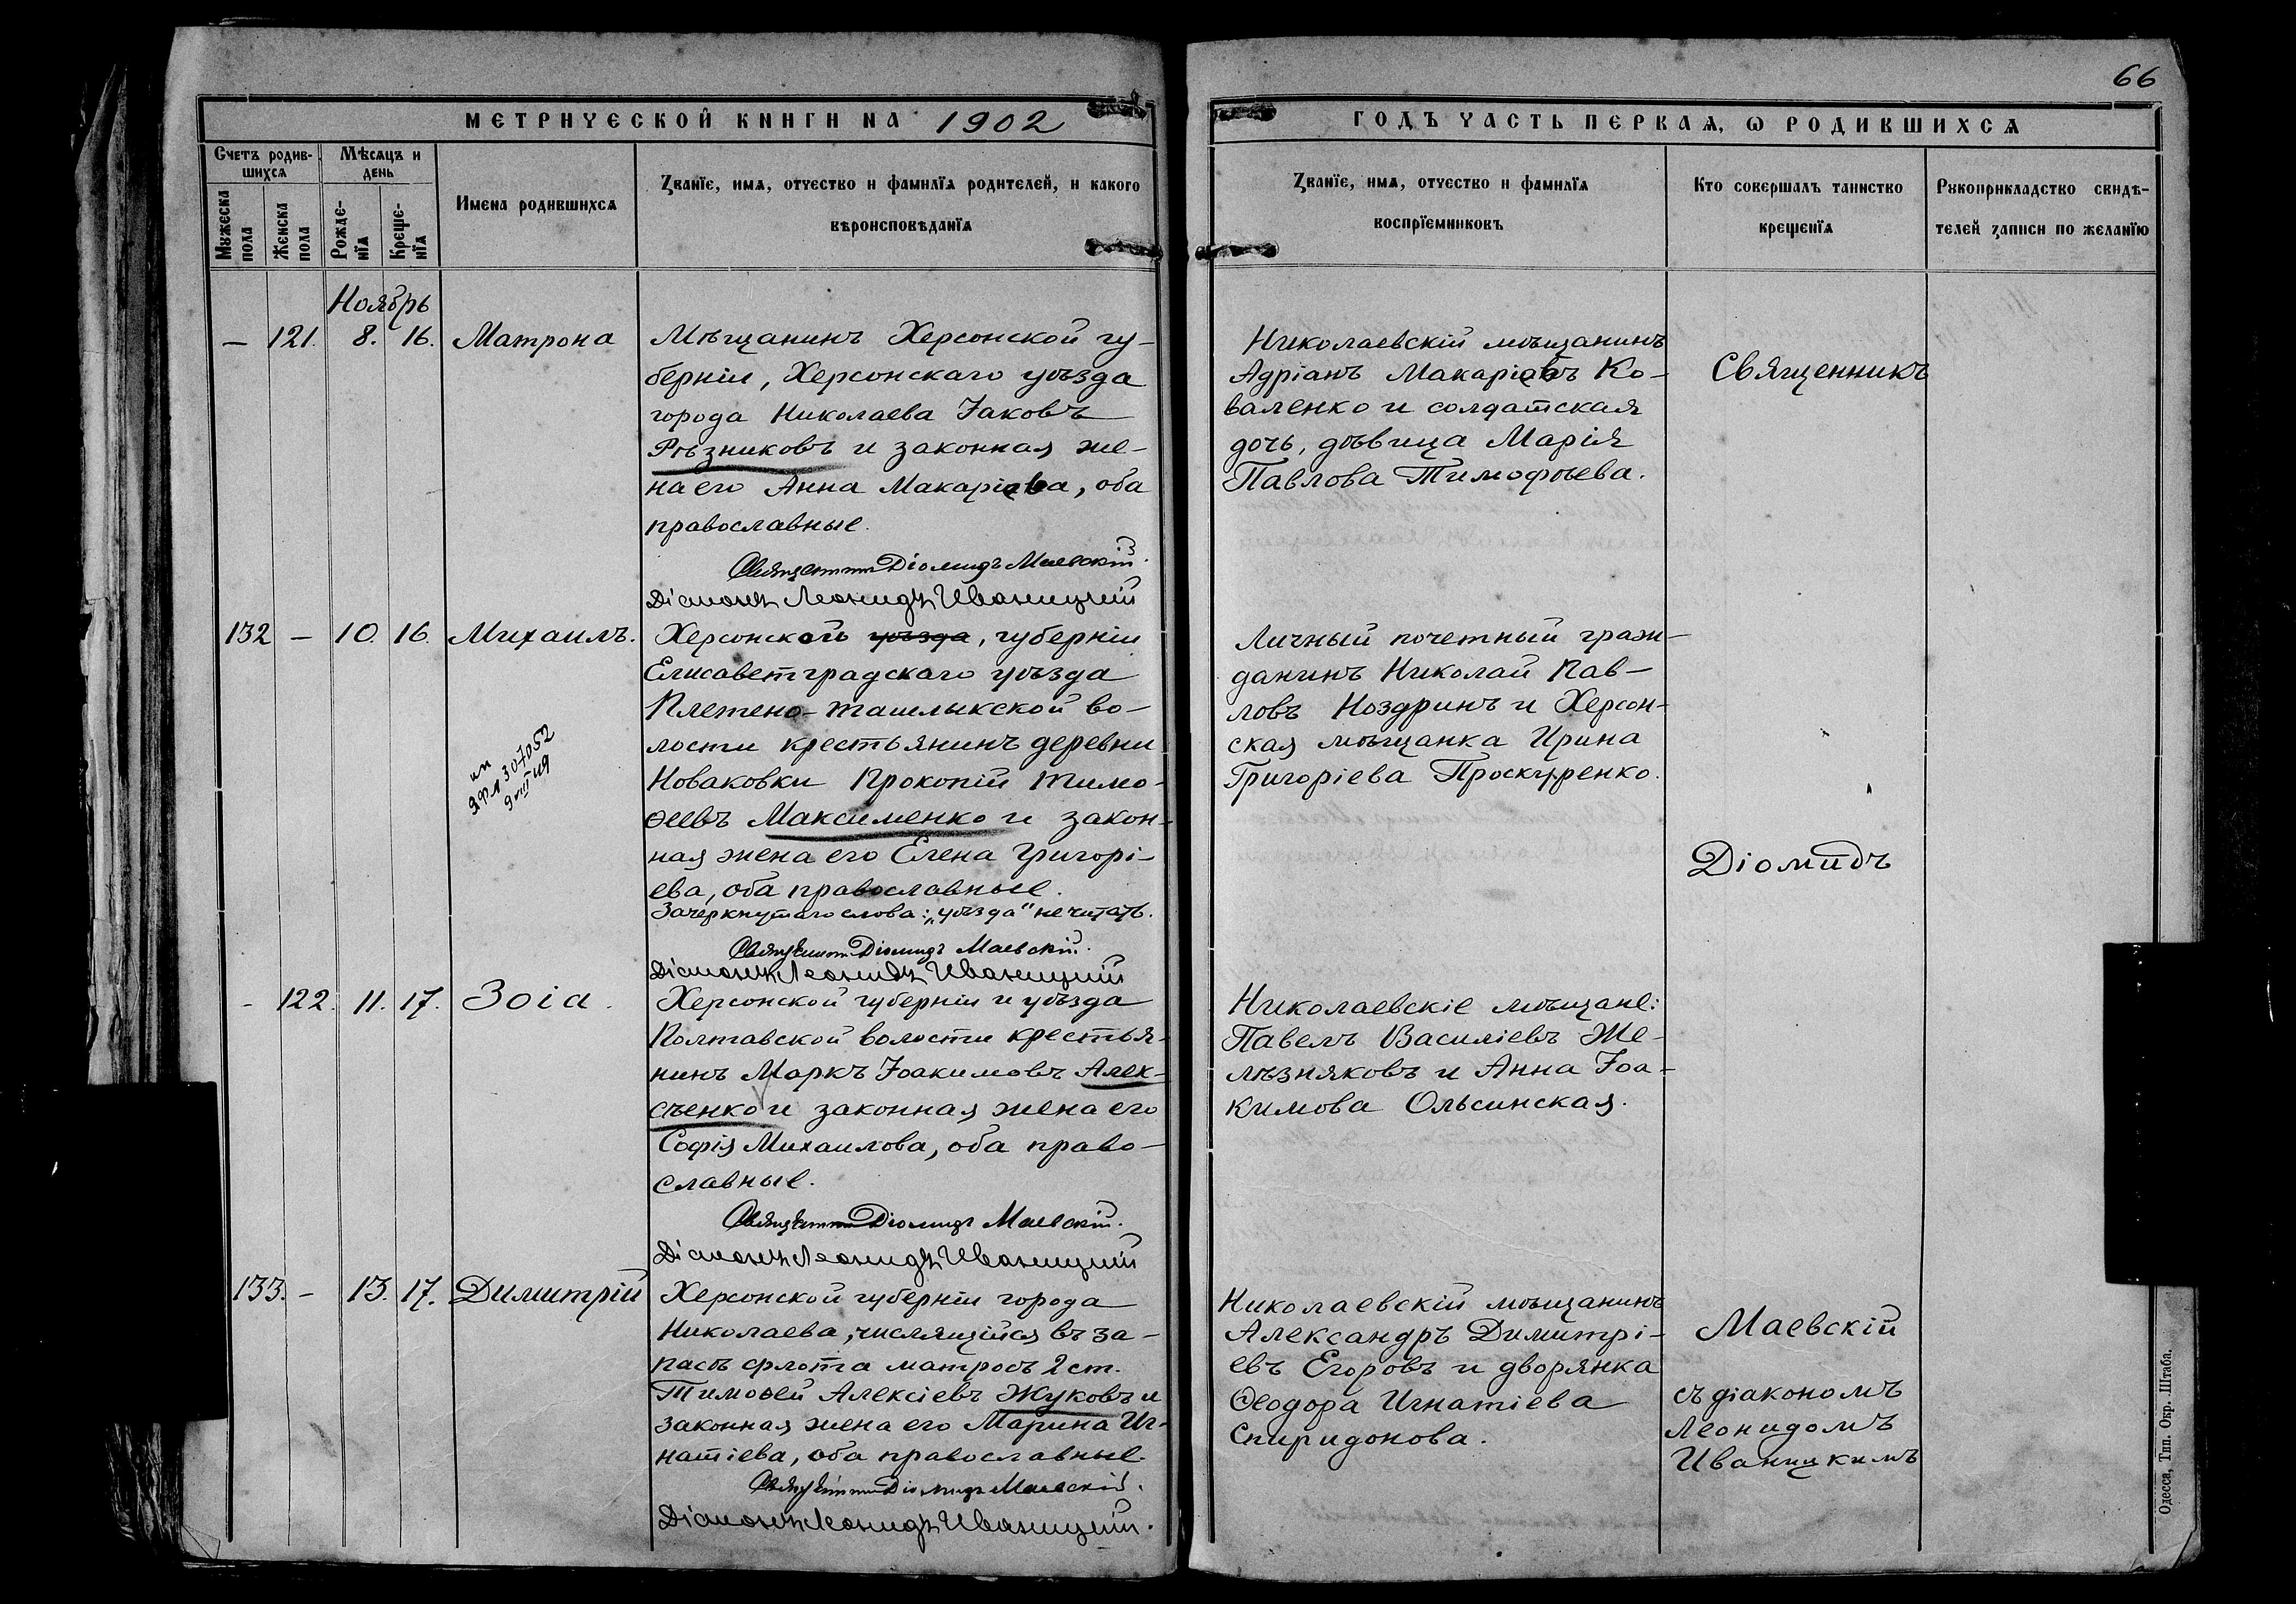 66
МЕТРИЧЕСКОЙ КНИГИ НА 1902
ГОДЪ ЧАСТЬ ПЕРВАЯ, Ѡ РОДИВШИХСЯ
Счетъ родив-
шихся
Мѣсяцъ и
день
Мужеска
пола
Женска
пола
Рожде-
нїя
Креще-
нїя
Имена родившихся
Званїе, имя, отчество и фамилїя родителей, и какого
вѣроисповѣданїя
Званїе, имя, отчество и фамилїя
воспрїемниковъ
Кто совершалъ таинство
крещенїя
Рукоприкладство свидѣ-
телей записи по желанїю
Ноябрь
— 121. 8. 16. Матрона
Мѣщанинъ Херсонской гу-
берніи, Херсонскаго уѣзда
города Николаева Іаковъ
Рѣзниковъ и законная же-
на его Анна Макаріева, оба
православные.
Священникъ Діомидъ Маевскій.
Діаконъ Леонидъ Иваницкій
Николаевскій мѣщанинъ
Адріанъ Макаріевъ Ко-
валенко и солдатская
дочь, дѣвица Марія
Павлова Тимофѣева.
132 — 10. 16. Михаилъ.
Херсонской уѣзда, губерніи
Елисаветградскаго уѣзда
Плетено-Ташлыкской во-
лости крестьянинъ деревни
Новаковки Прокопій Тимо-
ѳеевъ Максименко и закон-
ная жена его Елена Григорі-
ева, оба православные.
Зачеркнутаго слова: „уѣзда" не читать.
Священникъ Діомидъ Маевскій.
Діаконъ Леонидъ Иваницкій
307052
Личный почетный граж-
данинъ Николай Пав-
ловъ Ноздринъ и Херсон-
ская мѣщанка Ирина
Григоріева Проскуренко.
- 122. 11. 17. Зоіа.
Херсонской губерніи и уѣзда
Полтавской волости крестья-
нинъ Маркъ Іоакимовъ Алек-
сѣенко и законная жена его
Софія Михаилова, оба право-
славные.
Священникъ Діомидъ Маевскій.
Діаконъ Леонидъ Иваницкій
Николаевскіе мѣщане:
Павелъ Василіевъ Же-
лѣзняковъ и Анна Іоа-
кимова Ольсинская.
133. — 13. 17. Димитрій
Херсонской губерніи города
Николаева, числящійся въ за-
пасѣ флота матросъ 2 ст.
Тимоѳей Алексіевъ Жуковъ и
законная жена его Марина Иг-
натіева, оба православные.
Священникъ Діомидъ Маевскій.
Діаконъ Леонидъ Иваницкій.
Николаевскій мѣщанинъ
Александръ Димитрі-
евъ Егоровъ и дворянка
Ѳеодора Игнатіева
Спиридонова.
Священникъ
Діомидъ
Маевскій
съ діакономъ
Леонидомъ
Иваницкимъ
Одесса, Тип. Окр. Штаба.